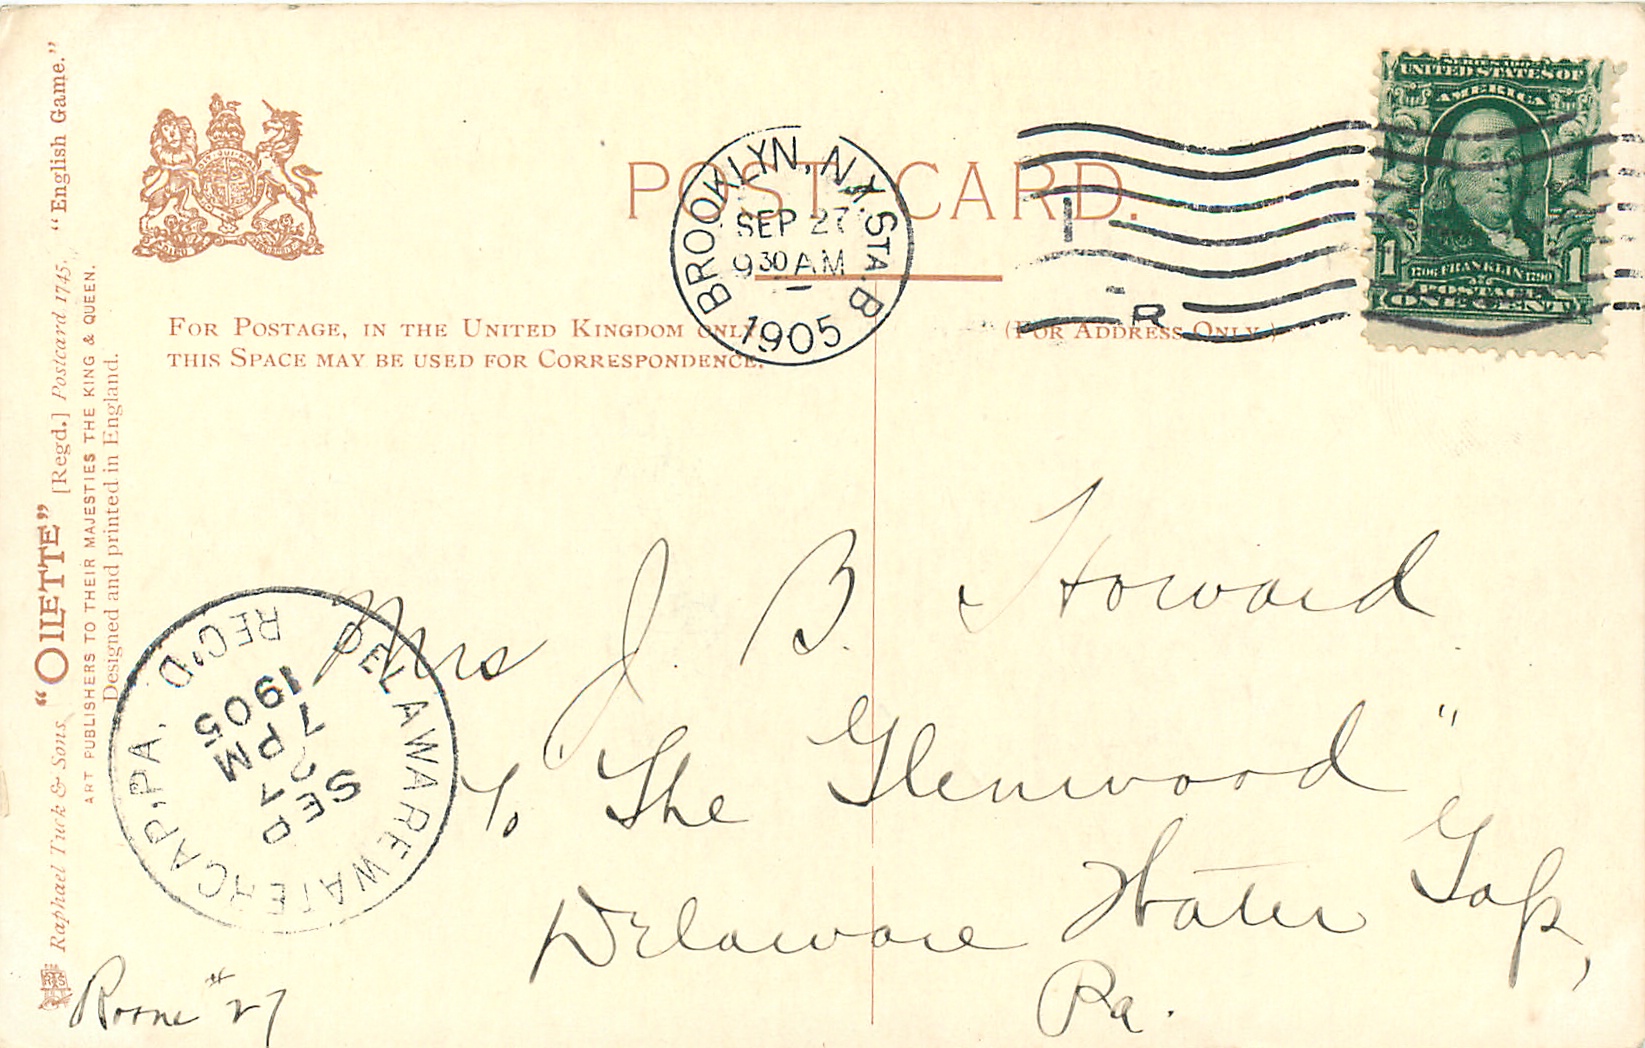 "English Game."
"OILETTE" [Regd.] Postcard 1745.
Raphael Tuck & Sons
ART PUBLISHERS TO THEIR MAJESTIES THE KING & QUEEN.
Designed and printed in England.
POST CARD.
BROOKLYN, N.Y. STA. B
SEP 27
930 AM
1905
UNITED STATES OF
AMERICA
1 1706 FRANKLIN 1790 1
POSTAGE
ONE CENT
FOR POSTAGE, IN THE UNITED KINGDOM ONLY
THIS SPACE MAY BE USED FOR CORRESPONDENCE.
(FOR ADDRESS ONLY.)
Mrs J. B. Howard
℅ The Glenwood"
Delaware Water Gap,
Pa.
DELAWARE WATER GAP, PA. REC'D
SEP
27
7 PM
1905
Room #27